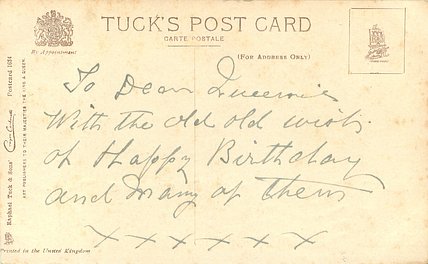 TUCK'S POST CARD
CARTE POSTALE
(FOR ADDRESS ONLY)
By Appointment
To Dear Queenie
With the old old wish
of Happy Birthday
and Many of Them
x x x x x x
Raphael Tuck & Sons' Postcard 1054
ART PUBLISHERS TO THEIR MAJESTIES THE KING & QUEEN.
Printed in the United Kingdom